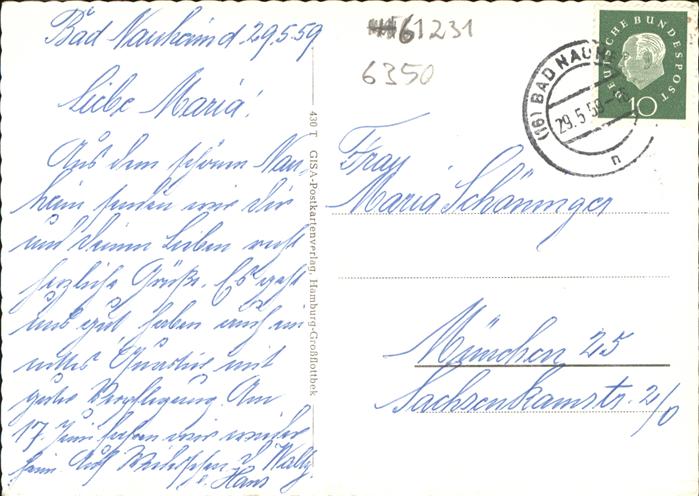 Bad Nauheim d. 29.5.59
Liebe Maria!
Aus dem schönen Nau-
heim senden wir Dir
und Deinen Lieben recht
herzliche Grüße. Es geht
uns gut haben auch ein
nettes Quartier mit
guter Verpflegung. Am
17. Juni fahren wir wieder
heim Auf Wiedersehen
u. Hans
430 T GISA-Postkartenverlag, Hamburg-Großflottbek
61231
6350
DEUTSCHE BUNDESPOST
10
(16) BAD NAUHEIM
29.5.59
n
Frau
Maria Schöninger
München 25
Sachsenkamstr. 2/0